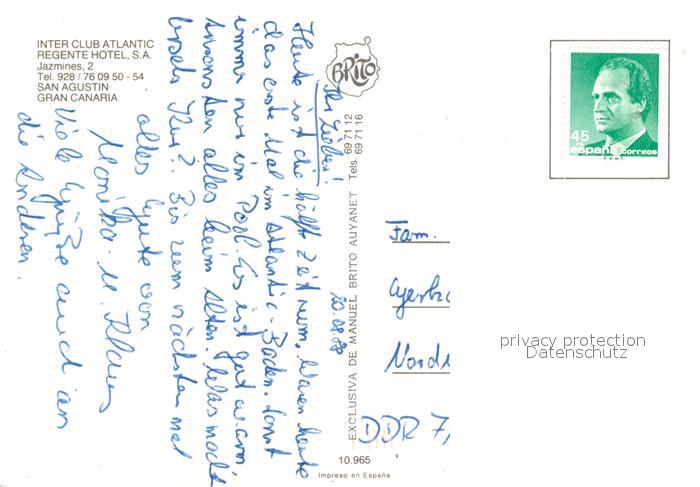 INTER CLUB ATLANTIC
REGENTE HOTEL, S.A.
Jazmines, 2
Tel. 928 / 76 09 50 - 54
SAN AGUSTIN
GRAN CANARIA
BRITO
EXCLUSIVA DE MANUEL BRITO AUYANET Tels. 69 71 12
69 71 16
20.08.88
Ihr Lieben!
Heute ist die hälfte Zeit rum. Waren heute
das erste Mal im Atlantic-Baden. Sonst
immer nur im Pool. Es ist gut warm
ansonsten alles beim Alten. Was macht
Kur? Bis zum nächsten mal
alles Gute von
Monika u. Klaus
Viele Grüße auch an
die Anderen.
45
españa correos
F.N.M.T.
Fam.
Nord
DDR 7
privacy protection
Datenschutz
10.965
Impreso en España